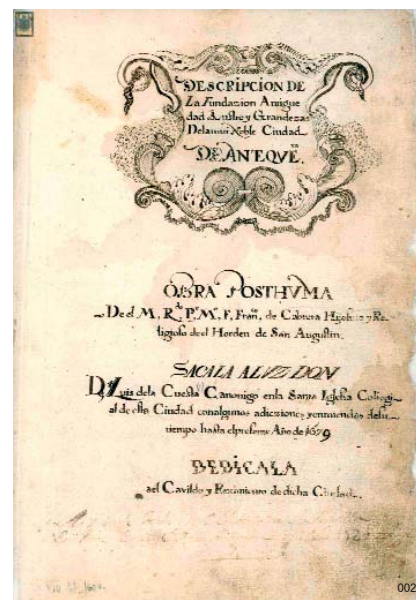 DESCRIPCION DE
La Fundazion Antigue
dad Lustre y Grandezas
Dela mui Noble Ciudad
DE ANTEQVERA.
OBRA POSTHVMA
De el M, R,do P,e M,o F, Fran,co de Cabrera Hijo y Re-
ligioso deel Horden de San Augustin.
SACALA ALVZ DON
Luis dela Cuesta Canonigo enla Santa Iglesia Collegi-
al de esta Ciudad con algunas adiciones y enmiendas de su
tiempo hasta el presente Año de 1679
DEDICALA
ael Cavildo y Reximiento de dicha Ciudad.
002